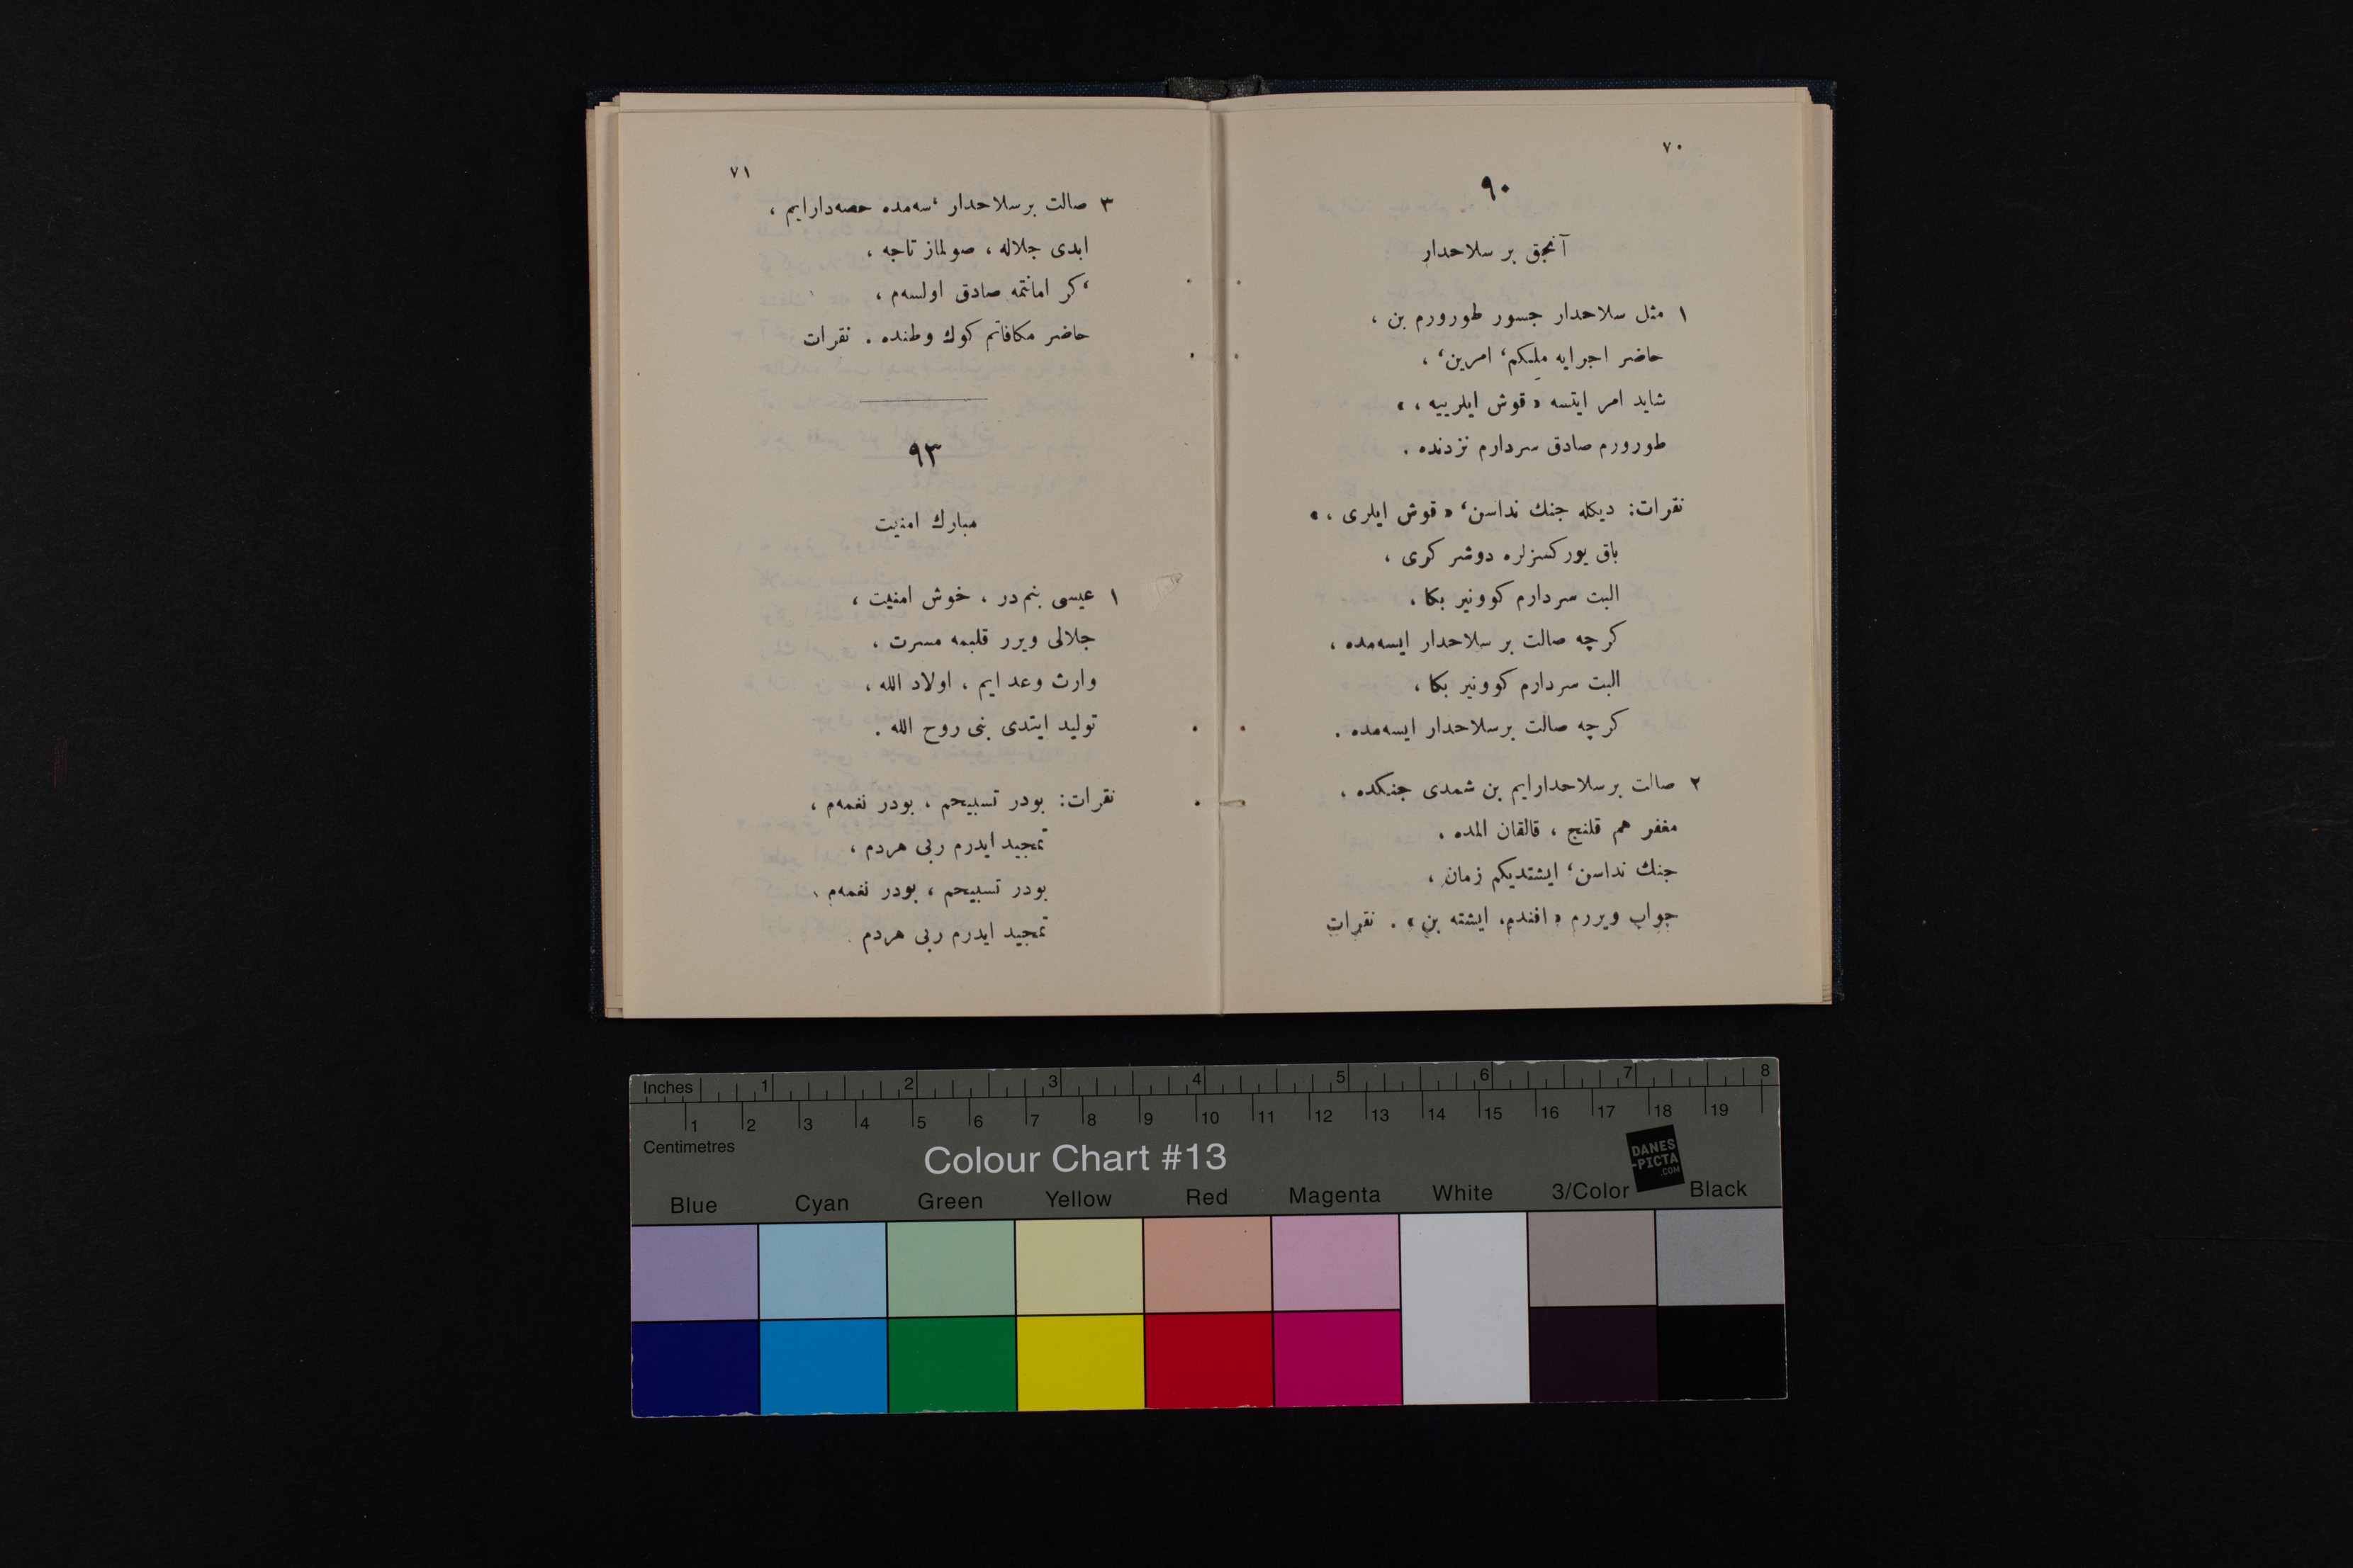 ٧٠
٩٠
آنجق بر سلاحدار
١ مثل سلاحدار جسور طورورم بن ،
حاضر اجرايه مليكم، امرين، ،
شايد امر ايتسه «قوش ايلرييه ، »
طورورم صادق سردارم نزدنده .
نقرات: ديكله جنك نداسن، «قوش ايلرى ، »
باق يوركسزلره دوشر كرى ،
البت سردارم كوونير بكا ،
كرچه صالت بر سلاحدار ايسه‌مده ،
البت سردارم كوونير بكا ،
كرچه صالت برسلاحدار ايسه‌مده .
٢ صالت برسلاحدارايم بن شمدى جنكده ،
مغفر هم قلنج ، قالقان المده .
جنك نداسن، ايشتديكم زمان ،
جواب ويررم «افندم، ايشته بن» . نقرات
٧١
٣ صالت برسلاحدار ،سه‌مده حصه‌دارايم ،
ابدى جلاله ، صولماز تاجه ،
،كر امانتمه صادق اولسه‌م ،
حاضر مكافاتم كوك وطنده . نقرات
٩٣
مبارك امنيت
١ عيسى بنم‌در ، خوش امنيت ،
جلالى ويرر قلبمه مسرت ،
وارث وعد ايم ، اولاد الله ،
توليد ايتدى بنى روح الله .
نقرات: بودر تسبيحم ، بودر نغمه‌م ،
تمجيد ايدرم ربى هردم ،
بودر تسبيحم ، بودر نغمه‌م ،
تمجيد ايدرم ربى هردم .
Inches 1 2 3 4 5 6 7 8
1 2 3 4 5 6 7 8 9 10 11 12 13 14 15 16 17 18 19
Centimetres
Colour Chart #13
DANES
-PICTA
.COM
Blue Cyan Green Yellow Red Magenta White 3/Color Black